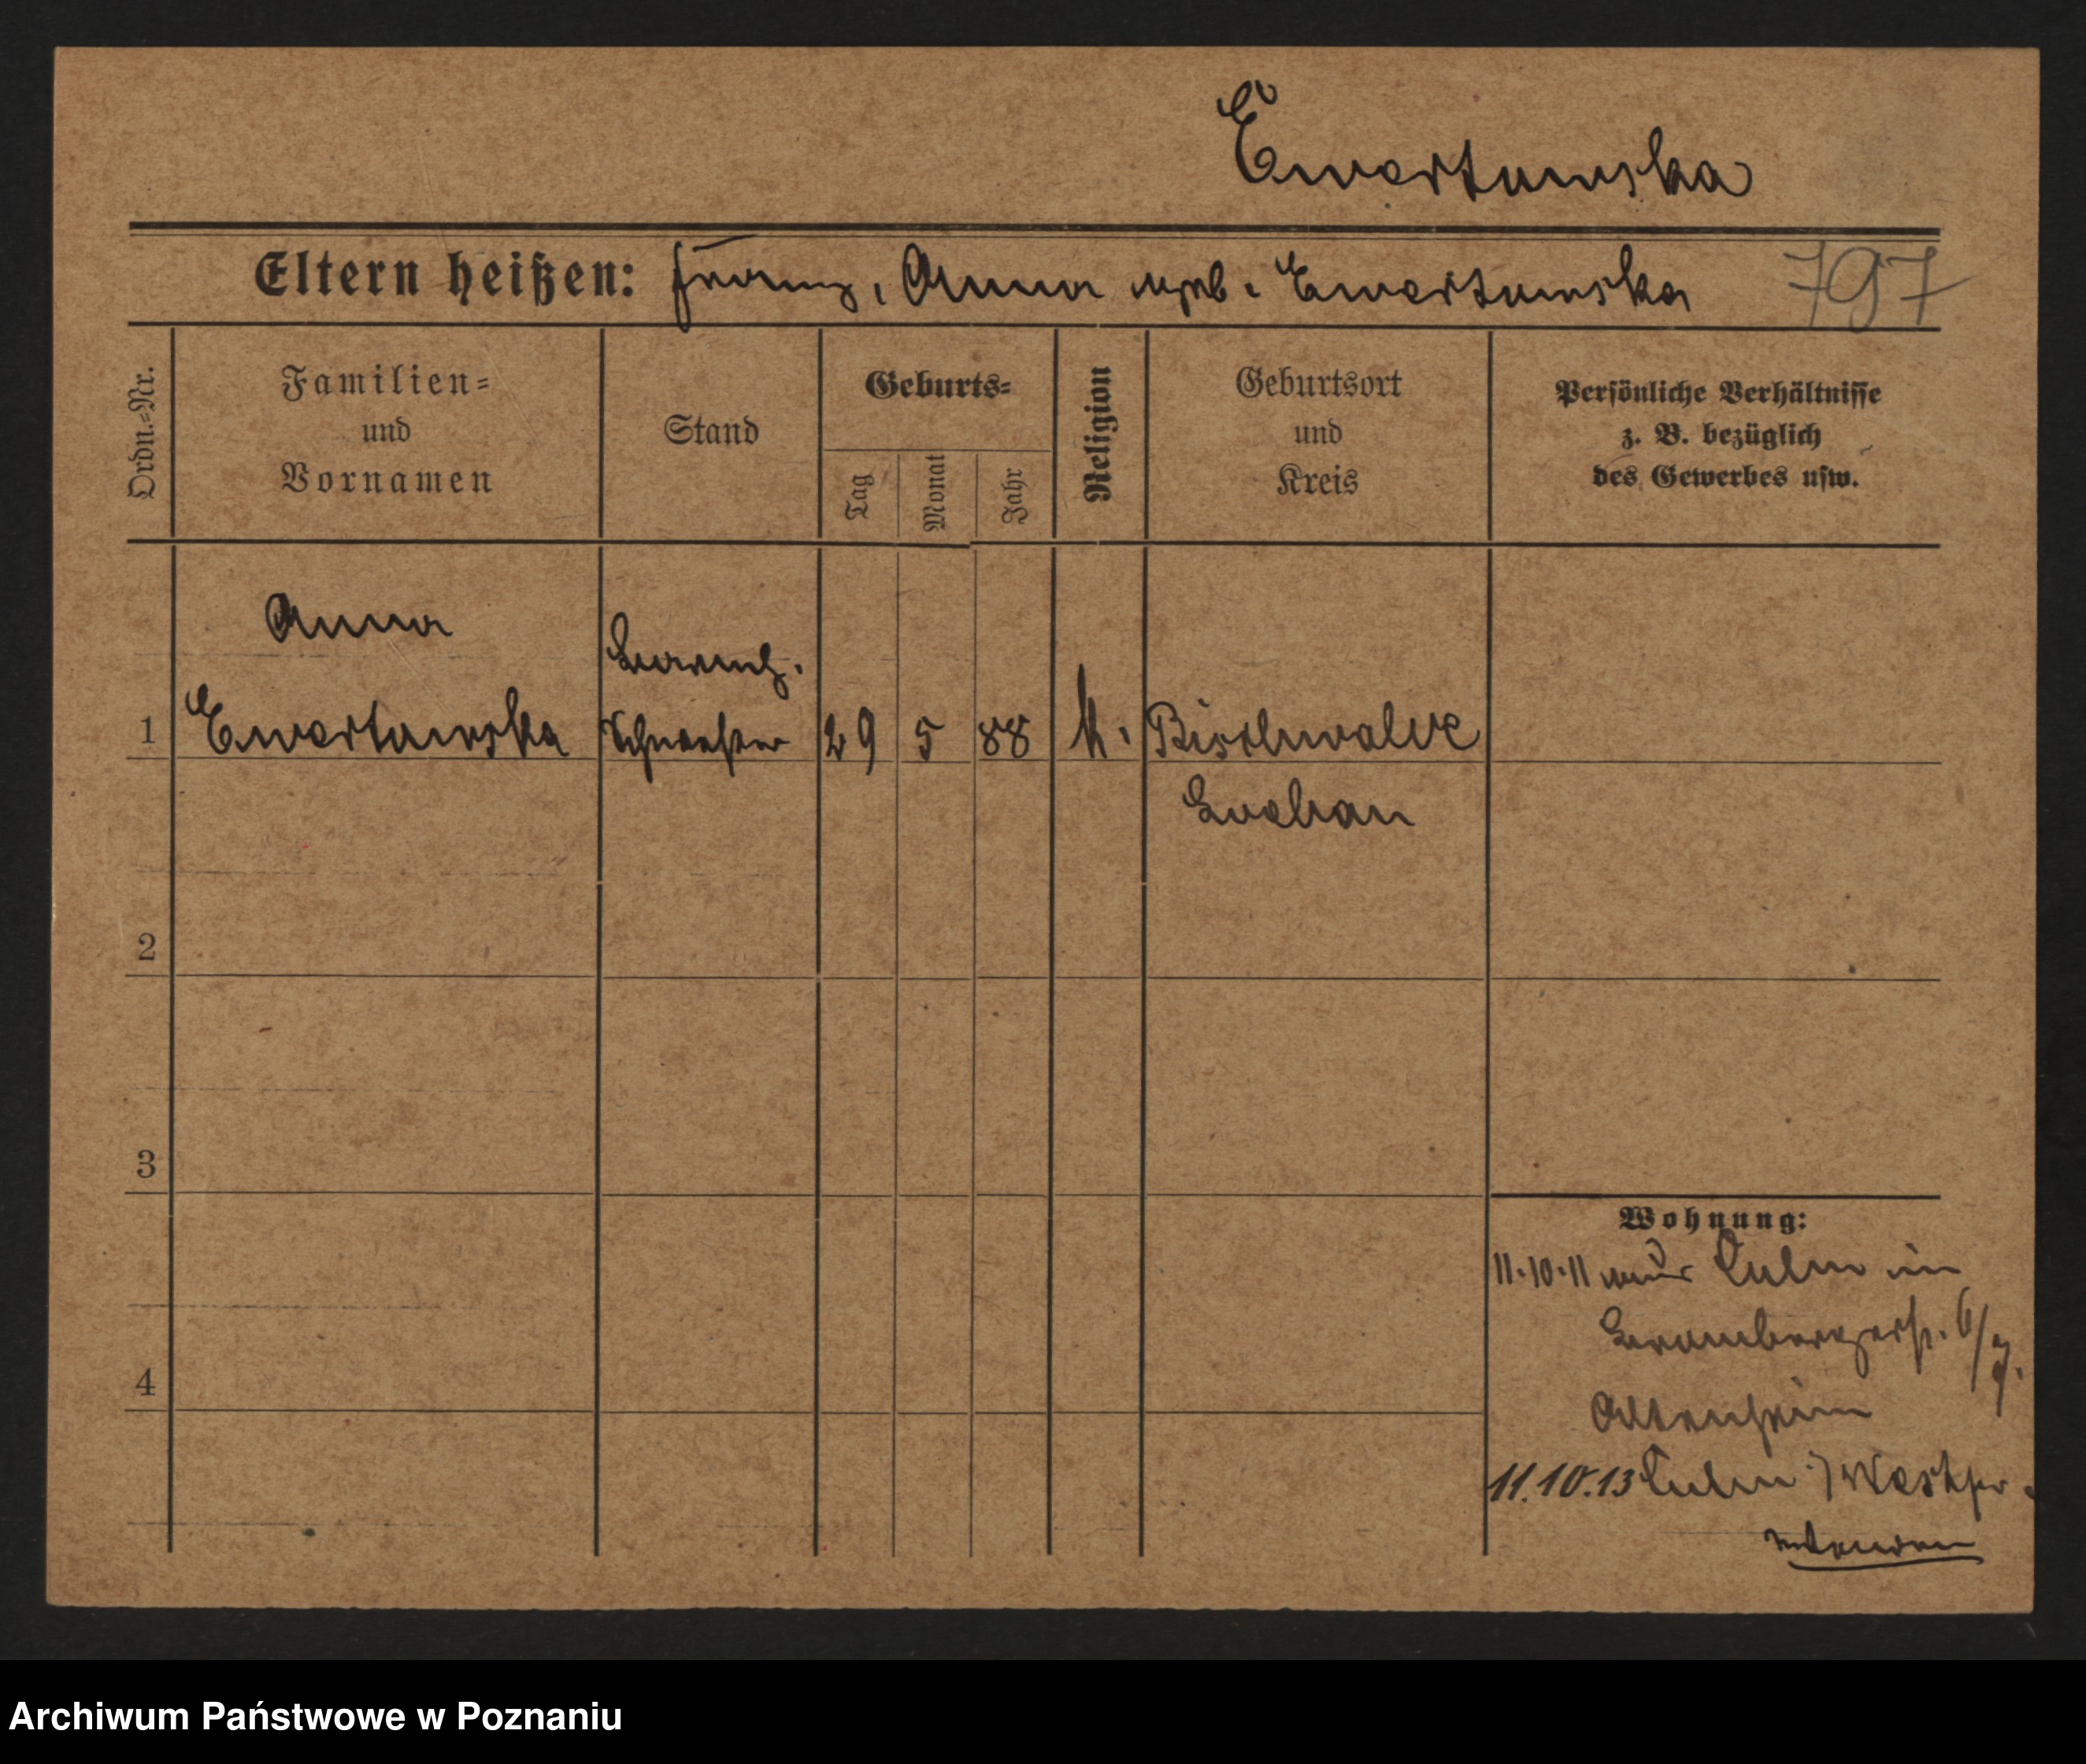 Ewertowska
Eltern heißen: Franz, Anna geb. Ewertowska 797
Ordn.=Nr.
Familien=
und
Vornamen
Stand
Geburts=
Tag
Monat
Jahr
Religion
Geburtsort
und
Kreis
Persönliche Verhältnisse
z. B. bezüglich
des Gewerbes usw.
Anna
1 Ewertowska Schwester 29 5 88 k. Bischwalde
Loebau
2
3
4
Wohnung:
11.10.11 Culm in
Brombergerstr. 6/7.
Altenheim
11.10.13 Culm Westpr.